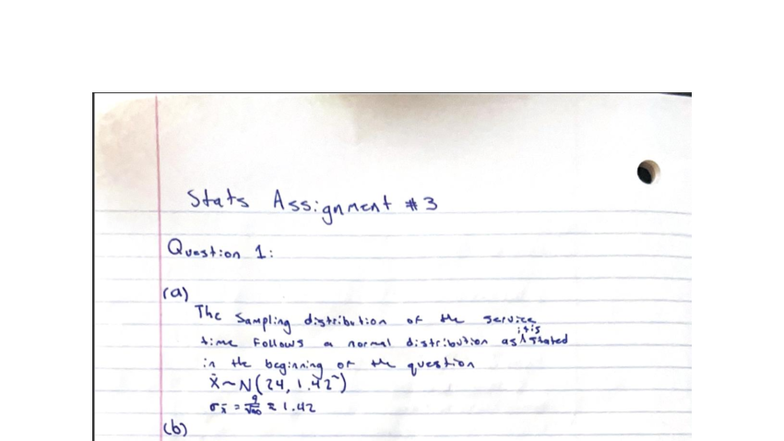 Stats Assignment #3
Question 1:
(a)
The Sampling distribution of the service
time follows a normal distribution as it is stated
in the beginning of the question
X̄~N(24, 1.42²)
σx̄ = 9/√40 ≈ 1.42
(b)